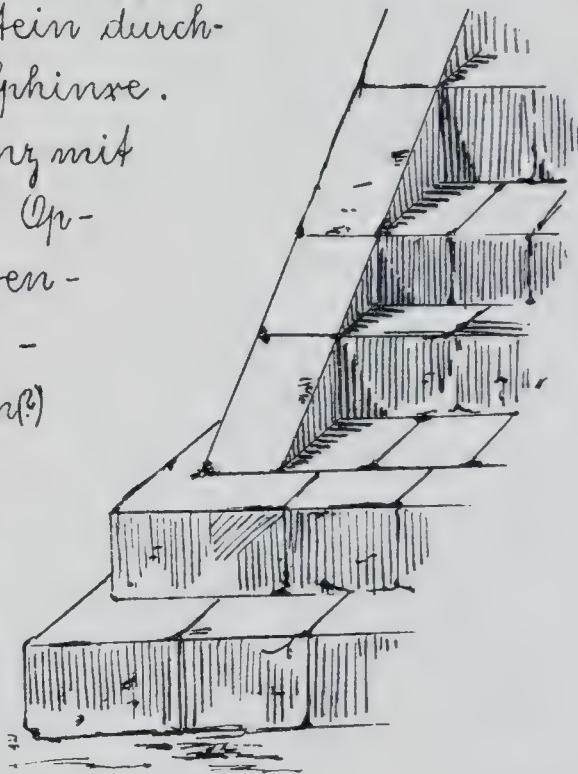 tein durch-
Sphinxe.
nz mit
Op-
en-
-
n(?)